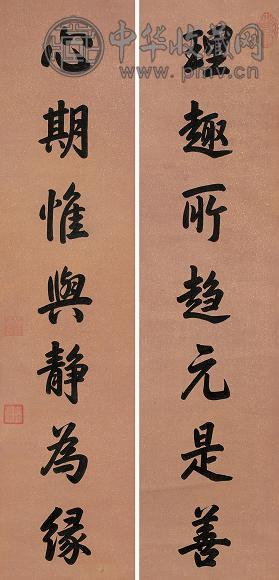 理趣所趋元是善
心期惟與静為缘
中华收藏网
www.pmv.cn